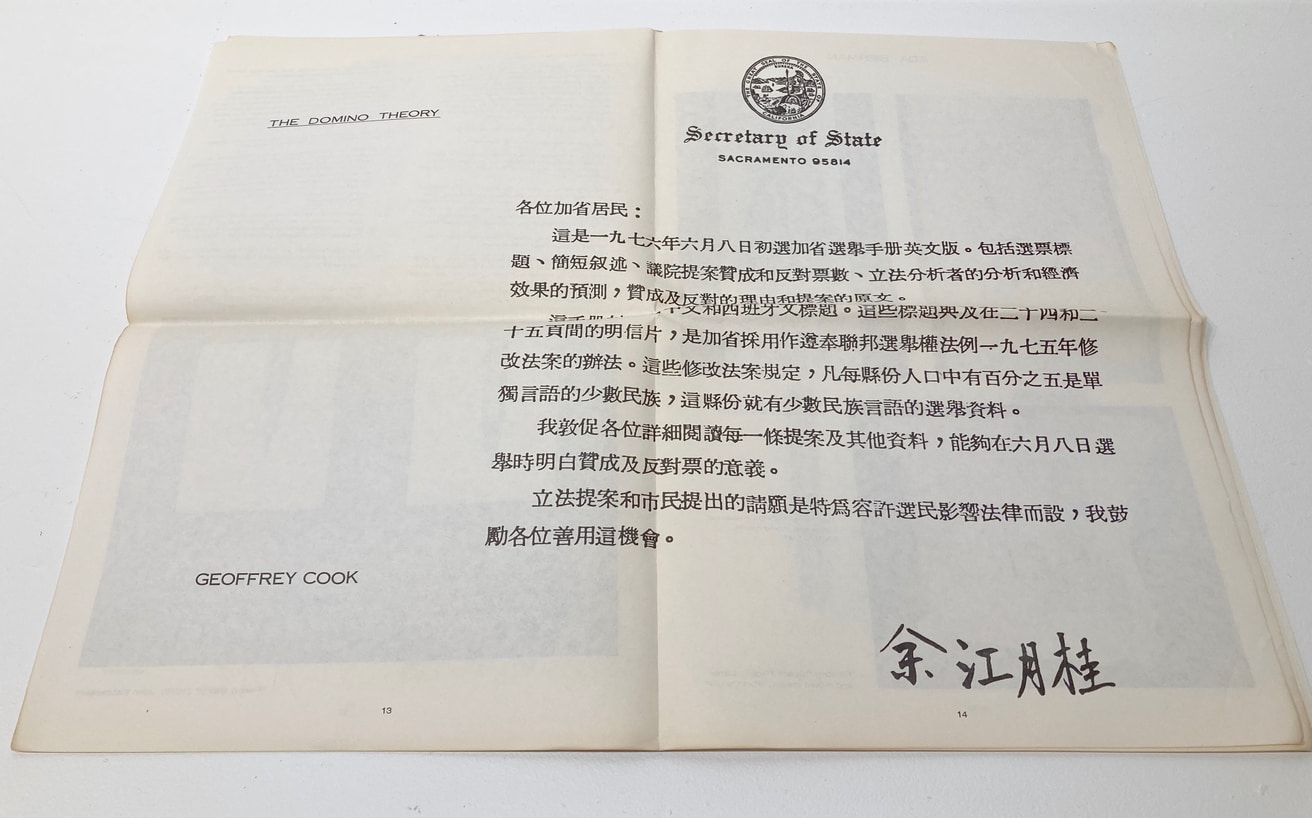 THE DOMINO THEORY
GEOFFREY COOK
13
THE GREAT SEAL OF THE STATE OF CALIFORNIA
EUREKA
Secretary of State
SACRAMENTO 95814
各位加省居民：
這是一九七六年六月八日初選加省選舉手册英文版。包括選票標
題、簡短叙述、議院提案贊成和反對票數、立法分析者的分析和經濟
效果的預測，贊成及反對的理由和提案的原文。
中文和西班牙文標題。這些標題與及在二十四和二
十五頁間的明信片，是加省採用作遵奉聯邦選舉權法例一九七五年修
改法案的辦法。這些修改法案規定，凡每縣份人口中有百分之五是單
獨言語的少數民族，這縣份就有少數民族言語的選舉資料。
我敦促各位詳細閱讀每一條提案及其他資料，能夠在六月八日選
舉時明白贊成及反對票的意義。
立法提案和市民提出的請願是特爲容許選民影響法律而設，我鼓
勵各位善用這機會。
余江月桂
14